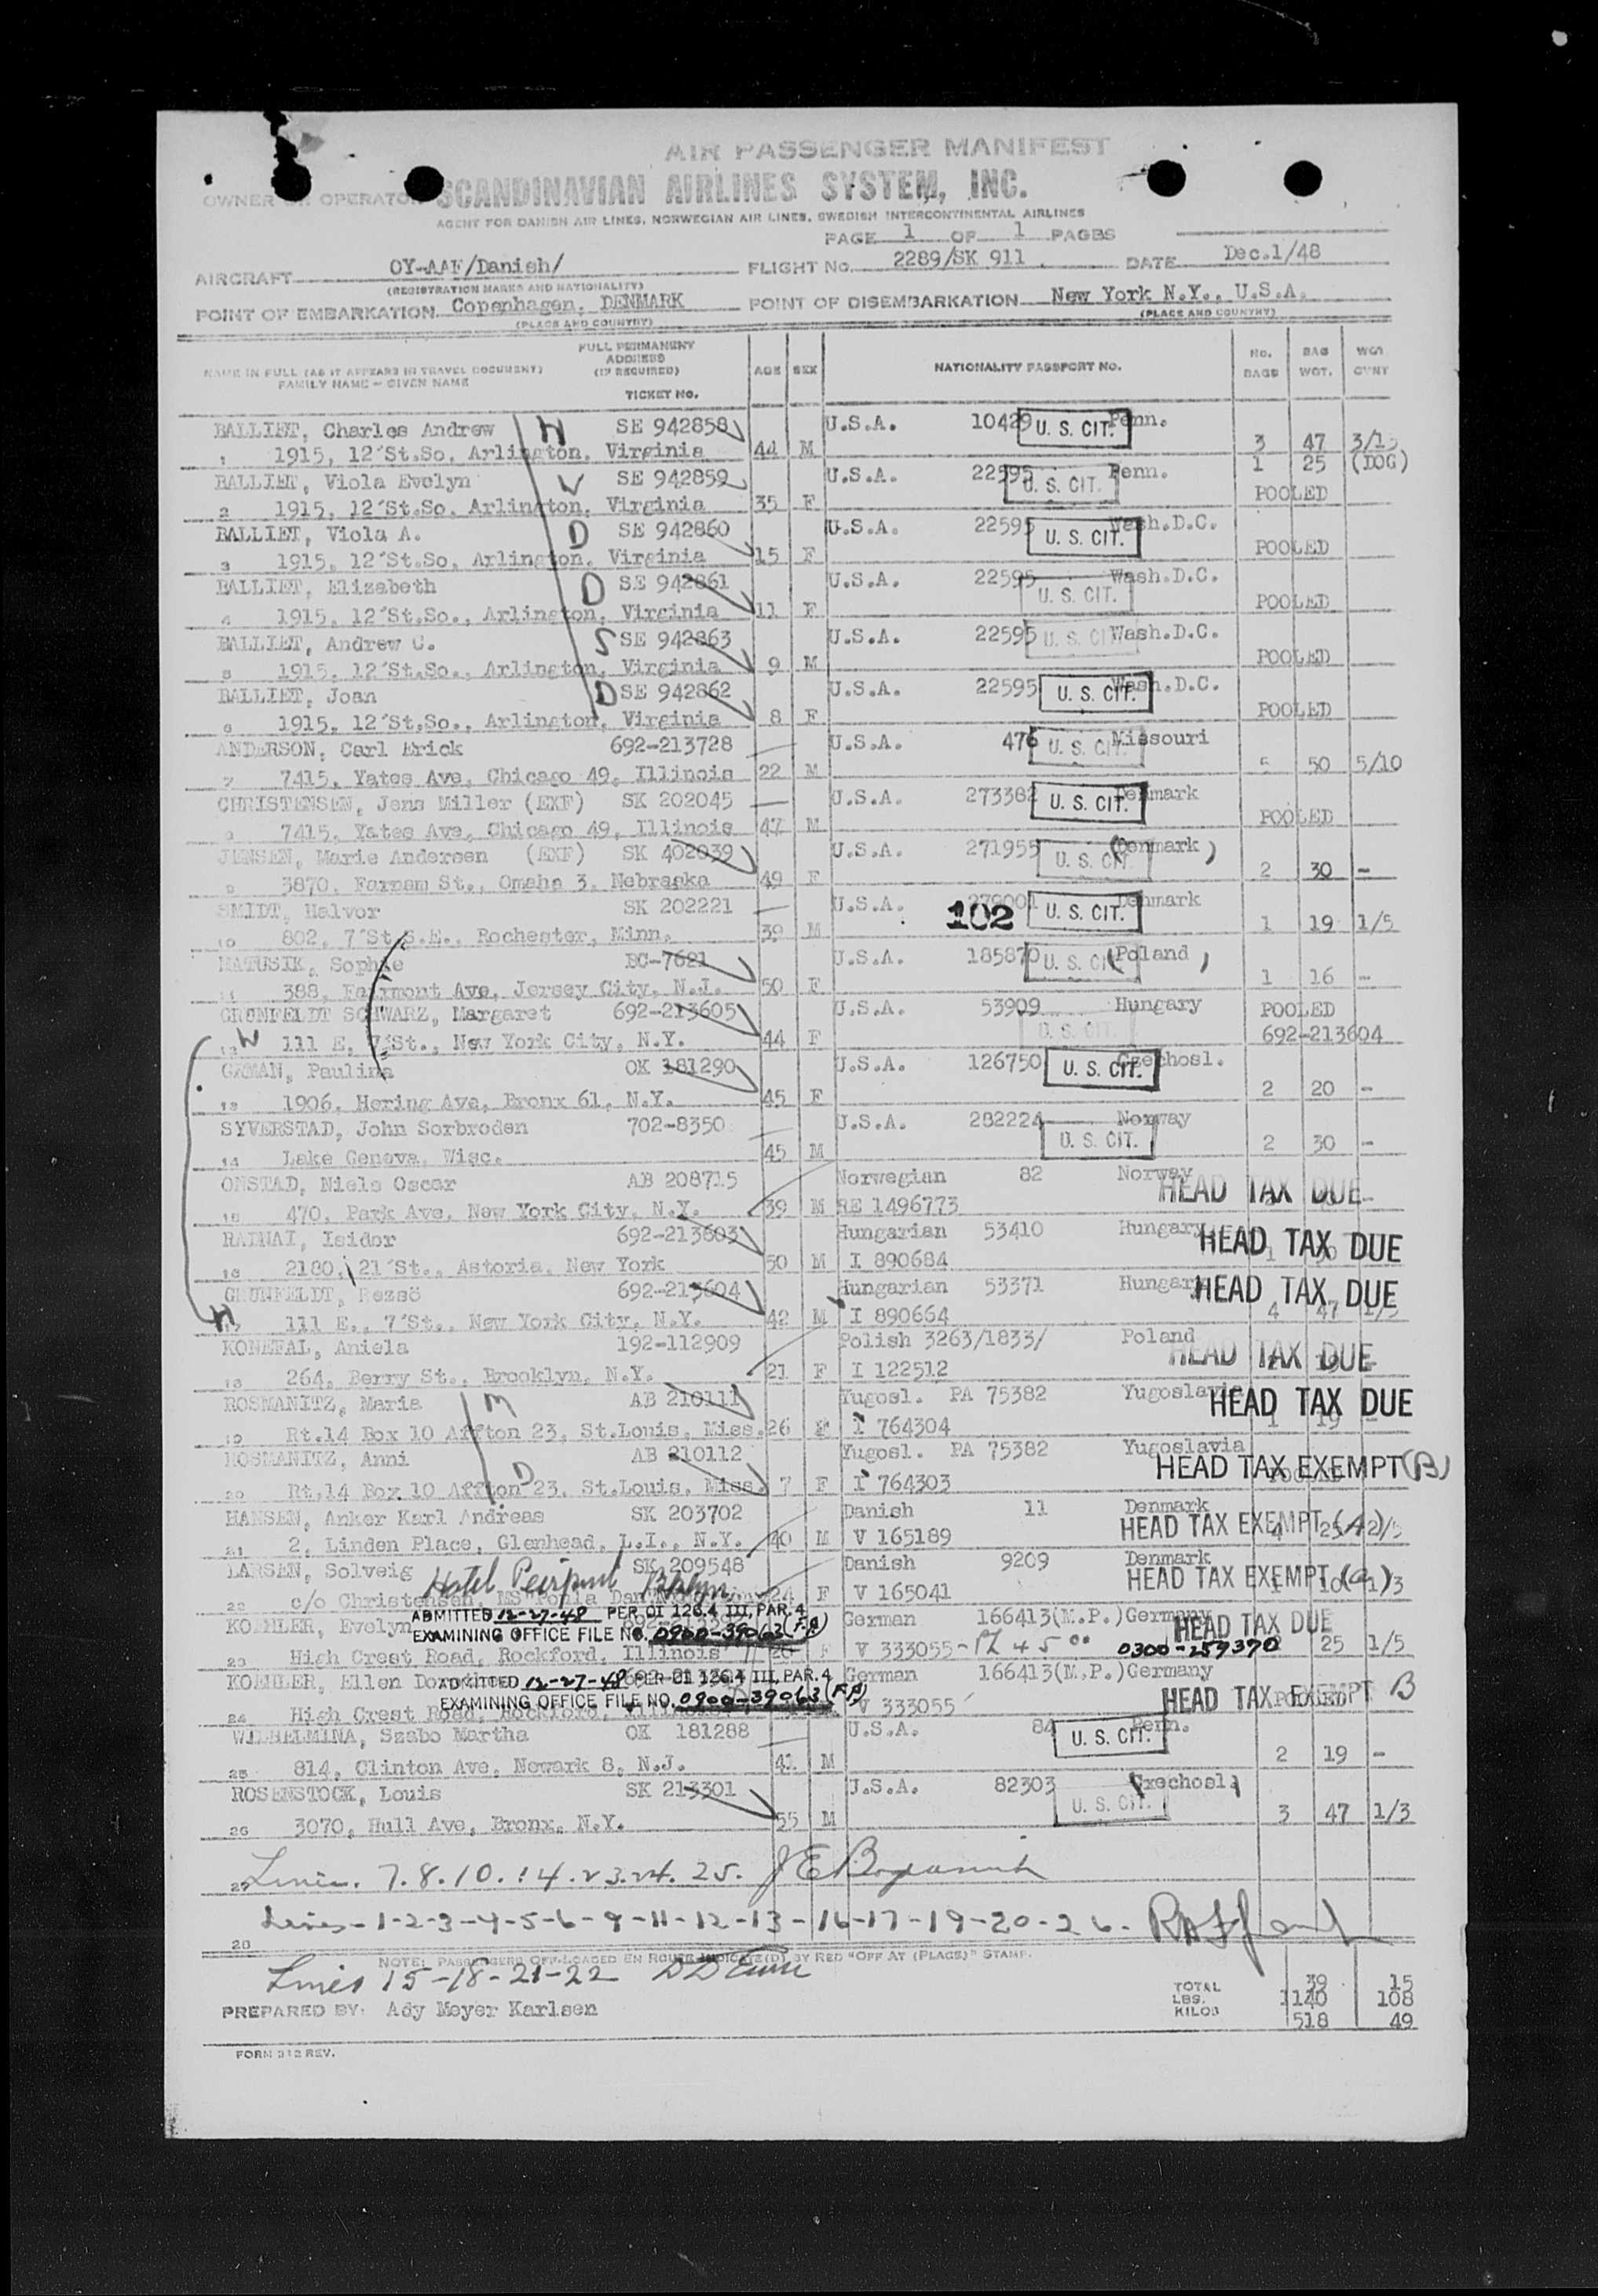 AIR PASSENGER MANIFEST
OWNER OR OPERATOR SCANDINAVIAN AIRLINES SYSTEM, INC.
AGENT FOR DANISH AIR LINES, NORWEGIAN AIR LINES, SWEDISH INTERCONTINENTAL AIRLINES
PAGE 1 OF 1 PAGES
AIRCRAFT OY-AAF/Danish/ FLIGHT No. 2289/SK 911 DATE Dec.1/48
(REGISTRATION MARKS AND NATIONALITY)
POINT OF EMBARKATION Copenhagen, DENMARK POINT OF DISEMBARKATION New York N.Y., U.S.A.
(PLACE AND COUNTRY) (PLACE AND COUNTRY)
NAME IN FULL (AS IT APPEARS IN TRAVEL DOCUMENT) FAMILY NAME - GIVEN NAME FULL PERMANENT ADDRESS (IF REQUIRED) TICKET No. AGE SEX NATIONALITY PASSPORT No. No. BAGS BAG WGT.
BALLIET, Charles Andrew H SE 942858 U.S.A. 10429 U. S. CIT. Penn.
1 1915, 12'St.So, Arlington, Virginia 44 M 3 47
1 25 (DOG)
BALLIET, Viola Evelyn W SE 942859 U.S.A. 22595 U. S. CIT. Penn.
2 1915, 12'St.So, Arlington, Virginia 35 F POOLED
BALLIET, Viola A. D SE 942860 U.S.A. 22595 U. S. CIT. Wash.D.C.
3 1915, 12'St.So, Arlington, Virginia 15 F POOLED
BALLIET, Elizabeth D SE 942861 U.S.A. 22595 U. S. CIT. Wash.D.C.
4 1915, 12'St.So., Arlington, Virginia 11 F POOLED
BALLIET, Andrew C. S SE 942863 U.S.A. 22595 U. S. CIT. Wash.D.C.
5 1915, 12'St.So., Arlington, Virginia 9 M POOLED
BALLIET, Joan D SE 942862 U.S.A. 22595 U. S. CIT. Wash.D.C.
6 1915, 12'St.So., Arlington, Virginia 8 F POOLED
ANDERSON, Carl Erick 692-213728 U.S.A. 476 U. S. CIT. Missouri
7 7415, Yates Ave, Chicago 49, Illinois 22 M 5 50 5/10
CHRISTENSEN, Jens Miller (EXF) SK 202045 U.S.A. 273382 U. S. CIT. Denmark
8 7415, Yates Ave, Chicago 49, Illinois 47 M POOLED
JENSEN, Marie Andersen (EXF) SK 402039 U.S.A. 271955 U. S. CIT (Denmark)
9 3870, Farnam St., Omaha 3, Nebraska 49 F 2 30 -
SMIDT, Halvor SK 202221 U.S.A. 102 U. S. CIT. Denmark
10 802, 7'St S.E., Rochester, Minn. 39 M 1 19 1/5
MATUSIK, Sophie BC-7621 U.S.A. 185870 U. S. CIT (Poland)
11 388, Fairmont Ave, Jersey City, N.J. 50 F 1 16 -
GRUNFELDT SCHWARZ, Margaret 692-213605 U.S.A. 53909 U. S. CIT. Hungary POOLED
12 W 111 E, 7'St., New York City, N.Y. 44 F 692-213604
Paulina OK 181290 U.S.A. 126750 U. S. CIT. Czechosl.
13 1906, Hering Ave, Bronx 61, N.Y. 45 F 2 20 -
SYVERSTAD, John Sorbroden 702-8350 U.S.A. 282224 U. S. CIT. Norway
14 Lake Geneva, Wisc. 45 M 2 30 -
ONSTAD, Niels Oscar AB 208715 Norwegian 82 Norway HEAD TAX DUE
15 470, Park Ave, New York City, N.Y. 39 M RE 1496773
Isidor 692-213603 Hungarian 53410 Hungary HEAD TAX DUE
16 2180, 21'St., Astoria, New York 50 M I 890684
GRUNFELDT, Rezsö 692-213604 Hungarian 53371 Hungary HEAD TAX DUE
H 17 111 E., 7'St., New York City, N.Y. 42 M I 890664 4 47 1/5
KONEFAL, Aniela 192-112909 Polish 3263/1833/ Poland HEAD TAX DUE
18 264, Berry St., Brooklyn, N.Y. 21 F I 122512
ROSMANITZ, Maria M AB 210111 Yugosl. PA 75382 Yugoslavia HEAD TAX DUE
19 Rt.14 Box 10 Affton 23, St.Louis, Miss. 26 F I 764304 1 19
ROSMANITZ, Anni D AB 210112 Yugosl. PA 75382 Yugoslavia
HEAD TAX EXEMPT (B)
20 Rt.14 Box 10 Affton 23, St.Louis, Miss. 7 F I 764303 POOLED
HANSEN, Anker Karl Andreas SK 203702 Danish 11 Denmark
HEAD TAX EXEMPT (A)
21 2, Linden Place, Glenhead, L.I., N.Y. 40 M V 165189
LARSEN, Solveig SK 209548 Danish 9209 Denmark
HEAD TAX EXEMPT (a)
Hotel Peirpont Bklyn
22 c/o Christensen, MS 24 F V 165041
ADMITTED 12-27-48 PER OI 126.4 III, PAR. 4
KOEHLER, Evelyn German 166413(M.P.) Germany HEAD TAX DUE
EXAMINING OFFICE FILE NO. 0900-39063
23 High Crest Road, Rockford, Illinois F V 333055 0300-259370 25 1/5
KOEHLER, Ellen German 166413(M.P.) Germany
ADMITTED 12-27-48 PER OI 126.4 III, PAR. 4
EXAMINING OFFICE FILE NO. 0900-39063 HEAD TAX EXEMPT B
24 High Crest Road, Rockford, Illinois V 333055 POOLED
WILHELMINA, Szabo Martha OK 181288 U.S.A. 84 U. S. CIT. Penn.
25 814, Clinton Ave, Newark 8, N.J. 41 M 2 19 -
ROSENSTOCK, Louis SK 213301 U.S.A. 82303 U. S. CIT. (Czechosl)
26 3070, Hull Ave, Bronx, N.Y. 55 M 3 47 1/3
27 Lines. 7.8.10.14.23.24.25.
Lines-1-2-3-4-5-6-9-11-12-13-16-17-19-20-26-
28
NOTE: PASSENGERS OFF-LOADED EN ROUTE INDICATE(D) BY RED "OFF AT (PLACE)" STAMP.
Lines 15-18-21-22
TOTAL 39 15
PREPARED BY: Ady Meyer Karlsen LBS. 1140 108
KILOS 518 49
FORM 312 REV.